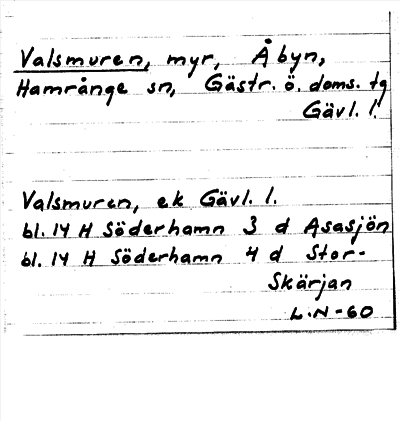 Valsmuren, myr, Åbyn,
Hamrånge sn, Gästr. ö. doms. tg
Gävl. l.
Valsmuren, ek Gävl. l.
bl. 14 H Söderhamn 3 d Åsasjön
bl. 14 H Söderhamn 4 d Stor-
Skärjan
L.N-60